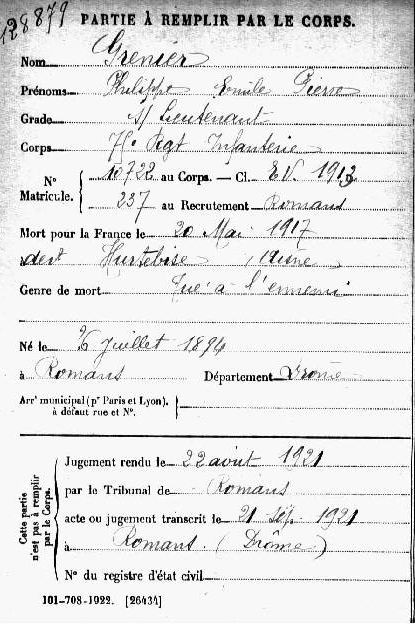 128879
PARTIE À REMPLIR PAR LE CORPS.
Nom Grenier
Prénoms Philippe Emile Pierre
Grade s/ Lieutenant
Corps 75e Rgt Infanterie
N° Matricule. { 10722 au Corps. — Cl. E.V. 1913
237 au Recrutement Romans
Mort pour la France le 20 Mai 1917
devt Hurtebise (Aisne
Genre de mort Tué à l'ennemi
Né le 26 Juillet 1894
à Romans Département Drôme
Arrt municipal (pr Paris et Lyon), à défaut rue et N°. {
Cette partie n'est pas à remplir par le Corps.
Jugement rendu le 22 août 1921
par le Tribunal de Romans
acte ou jugement transcrit le 21 sep. 1921
à Romans (Drôme)
N° du registre d'état civil
101-708-1922. [26434]